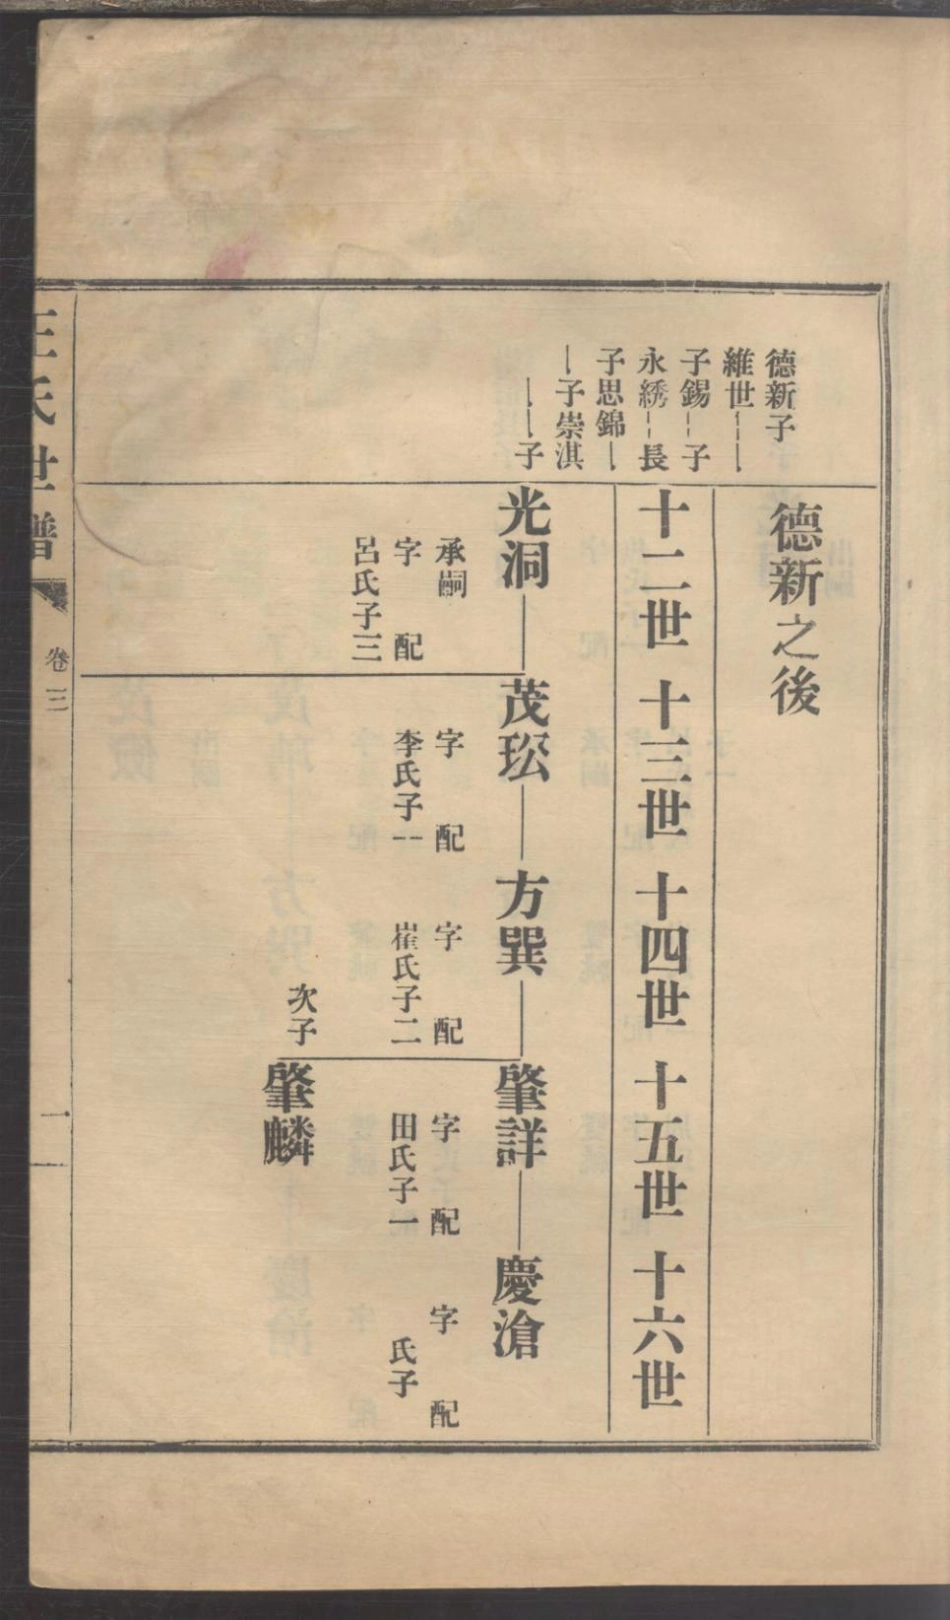 德新子
維世
子錫子
永綉長
子思錦
子崇淇
子
德新之後
十二世
十三世
十四世
十五世
十六世
光洞
承嗣
字 配
呂氏子三
茂玜
字 配
李氏子一
方巽
字 配
崔氏子二
肇詳
字 配
田氏子一
慶滄
字 配
氏子
次子
肇麟
王氏世譜
卷三
一